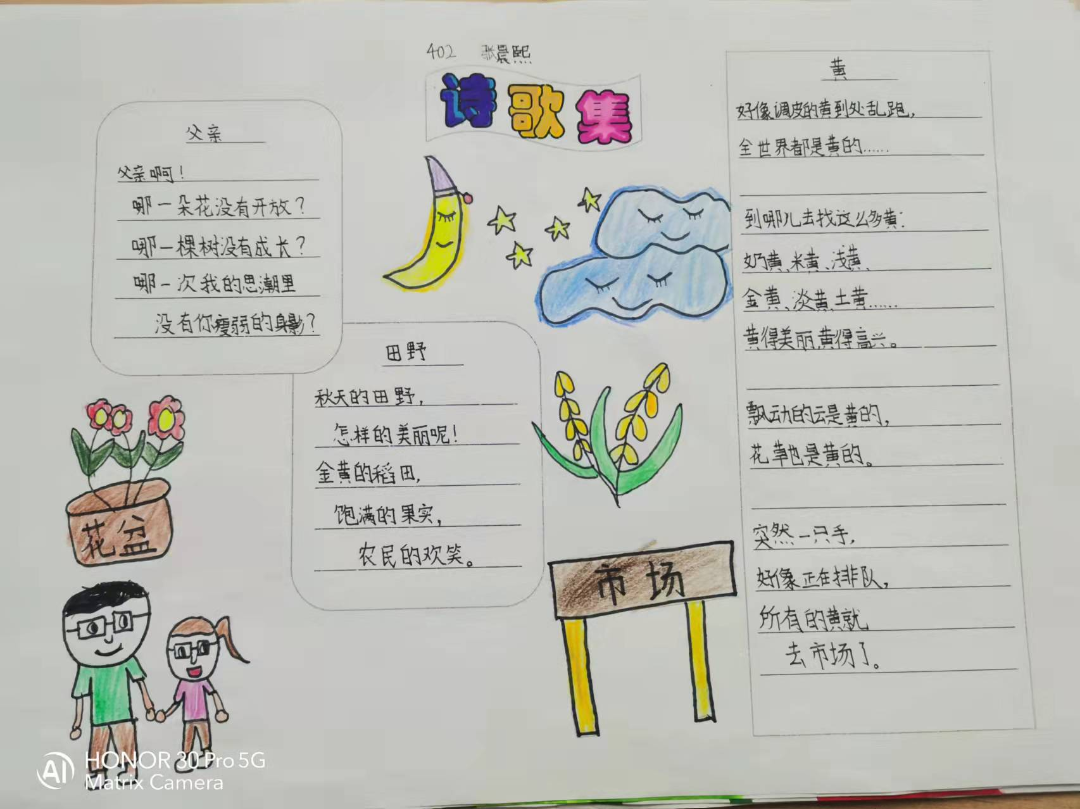 402 晨熙
诗歌集
父亲
父亲啊！
哪一朵花没有开放？
哪一棵树没有成长？
哪一次我的思潮里
没有你瘦弱的身影？
田野
秋天的田野，
怎样的美丽呢！
金黄的稻田，
饱满的果实，
农民的欢笑。
黄
好像调皮的黄到处乱跑，
全世界都是黄的……
到哪儿去找这么多黄：
奶黄、米黄、浅黄、
金黄、淡黄、土黄……
黄得美丽，黄得高兴。
飘动的云是黄的，
花草也是黄的。
突然一只手，
好像正在排队，
所有的黄就
去市场了。
花盆
市场
AI HONOR 30 Pro 5G
Matrix Camera